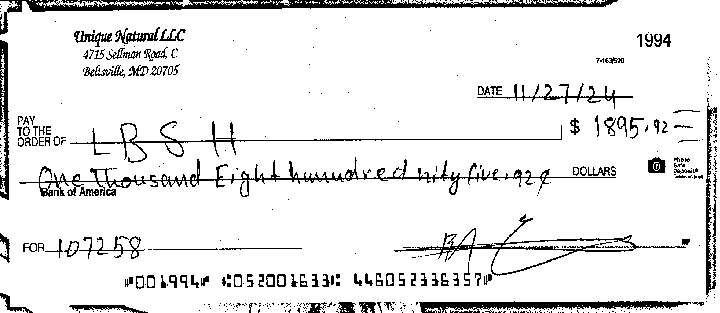 Unique Natural LLC
1994
4715 Sellman Road, C
Beltsville, MD 20705
7-163/520
DATE 11/27/24
PAY
TO THE
ORDER OF LBSH $ 1895.92
One Thousand Eight hunudred nity five.92¢ DOLLARS
Bank of America
FOR 107258
⑈001994⑈ ⑆052001633⑆ 446052336357⑈